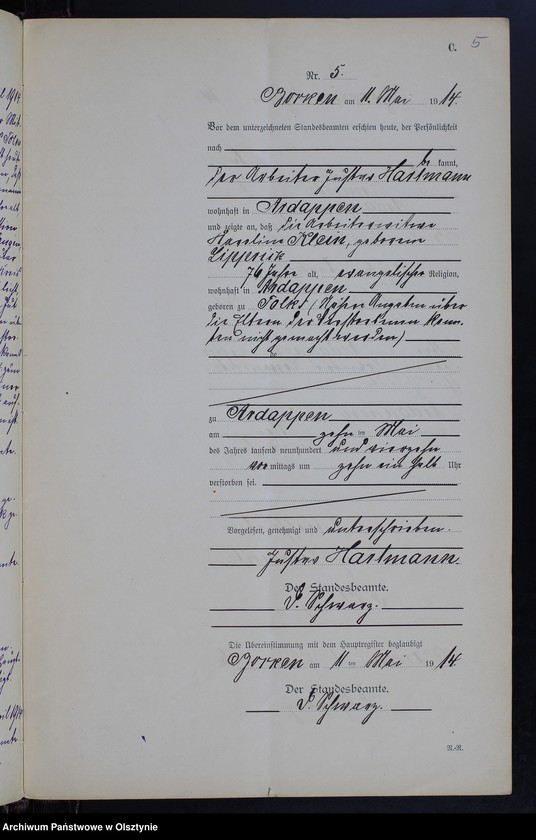 C. 5
Nr. 5.
Borken am 11. Mai 1914.
Vor dem unterzeichneten Standesbeamten erschien heute, der Persönlichkeit
nach
bekannt,
der Arbeiter Gustav Hartmann
wohnhaft in Ardappen
und zeigte an, daß die Arbeiterwitwe
Karoline Klein, geborene
Lippeück
76 Jahre alt, evangelischer Religion,
wohnhaft in Ardappen
geboren zu Tolks (Nähere Angaben über
die Eltern der Verstorbenen konn-
ten nicht gemacht werden)
zu Ardappen
am zehn ten Mai
des Jahres tausend neunhundert und vierzehn
vor mittags um zehn ein halb Uhr
verstorben sei.
Vorgelesen, genehmigt und unterschrieben.
Gustav Hartmann.
Der Standesbeamte.
Schwarz.
Die Übereinstimmung mit dem Hauptregister beglaubigt
Borken am 11 ten Mai 1914.
Der Standesbeamte.
Schwarz.
N.-R.
Archiwum Państwowe w Olsztynie